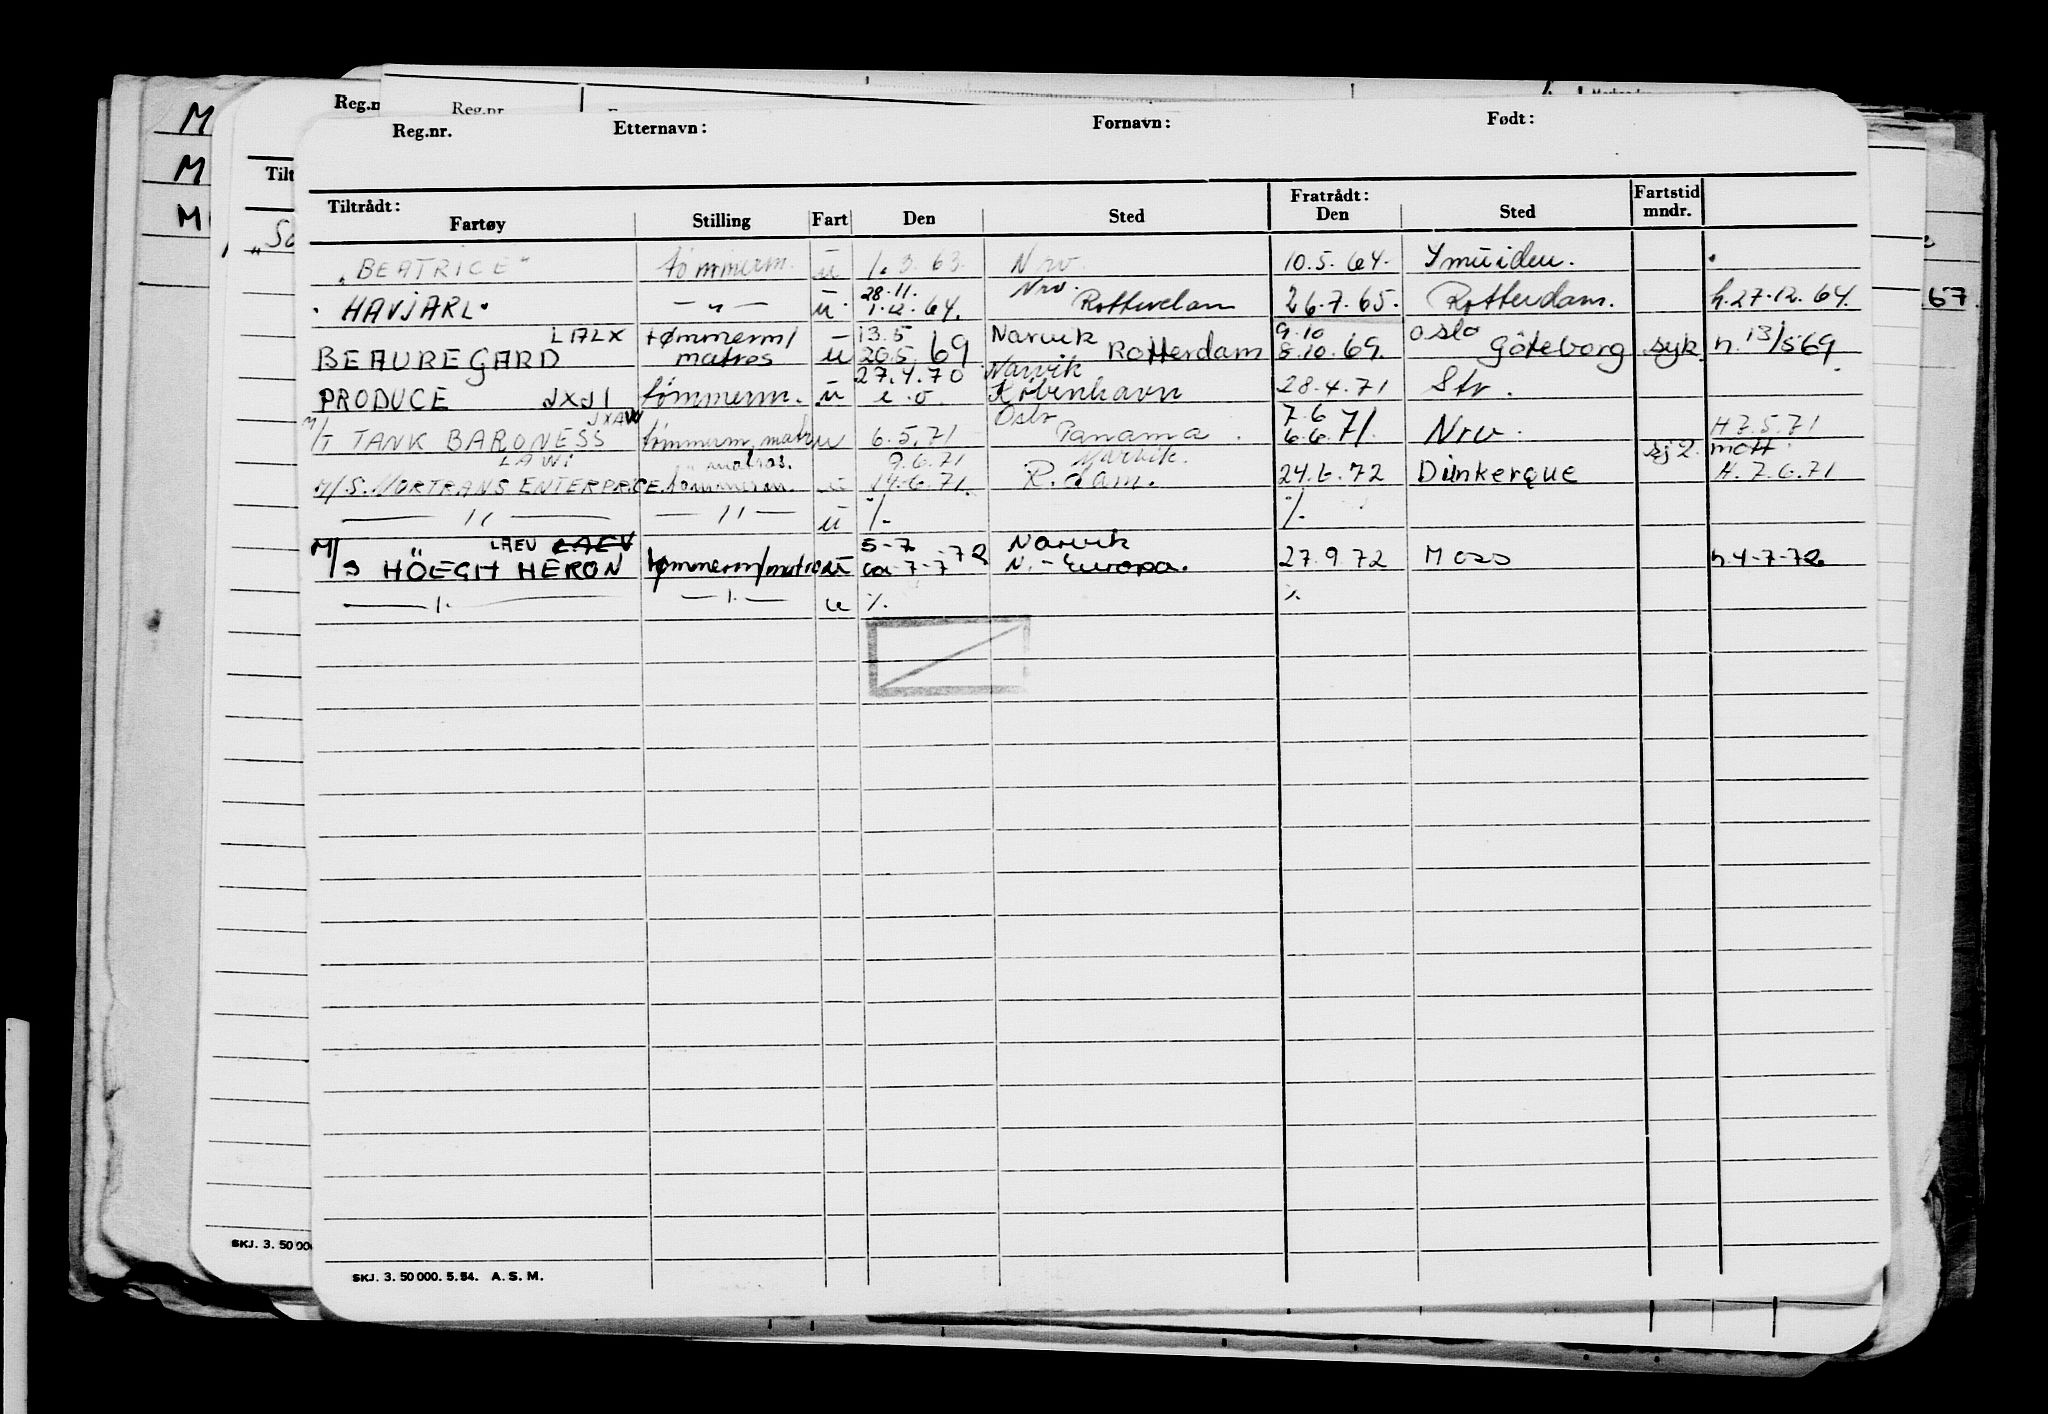 M
M
M
Reg.n
Reg.nr
Reg.nr. Etternavn: Fornavn: Født:
Tilt
Tiltrådt: Fratrådt: Fartstid
Fartøy Stilling Fart Den Sted Den Sted mndr.
"So
"BEATRICE" tømmerm. u 1.3.63. Nrv. 10.5.64. Ymuiden.
28.11. Nrv.
"HAVJARL" — " — u. 1.12.64. Rotterdam 26.7.65. Rotterdam. h.27.12.64.
67.
LALX tømmerm/ 13.5 Narvik 9.10 oslo
BEAUREGARD matros u 20.5 69 Rotterdam 8.10.69 Göteborg syk h.13/5 69
27.4.70 Narvik
PRODUCE JXJI tømmerm. u e.o. København 28.4.71 Str.
JXAW Oslo 7.6
M/T TANK BARONESS tømmerm, matr u 6.5.71 Panama. 6.6.71. Nrv. H 7.5.71
LAWI matros. 9.6.71 Narvik. sj 2. mott
M/S. NORTRANS ENTERPRICE. tømmerm. u 14.6.71. R.dam. 24.6.72 Dunkerque H.7.6.71
— " — — " — u /- /-
LAEV LAEV 5-7 Narvik
M/S HÖEGH HERON tømmerm/matros u ca 7-7 -72 N.-Europa. 27.9.72 Moss h.4-7-72
— " — — " — u ٪ ٪
SKJ. 3. 50 00
SKJ. 3. 50 000. 5. 54. A. S. M.